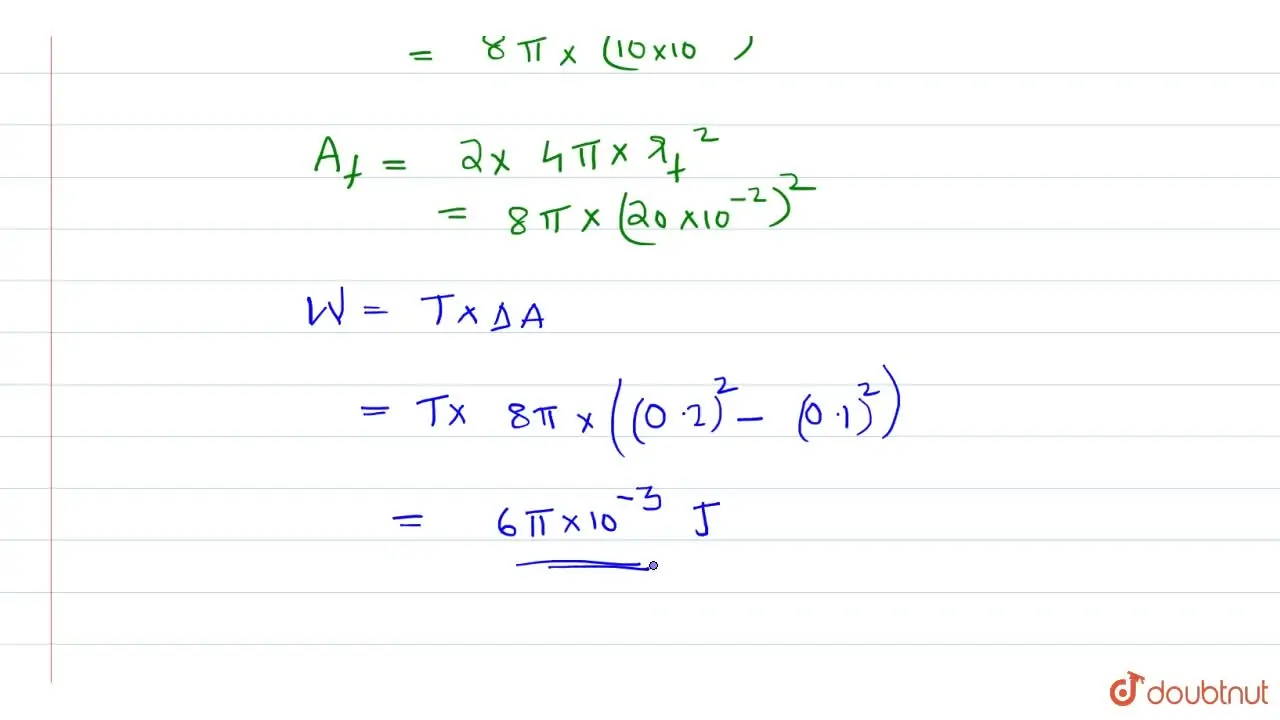 = 8π × (10×10 )
A_f = 2× 4π × r_f²
= 8π × (20×10⁻²)²
W = T × ΔA
= T× 8π × ((0.2)² – (0.1)²)
= 6π×10⁻³ J
doubtnut